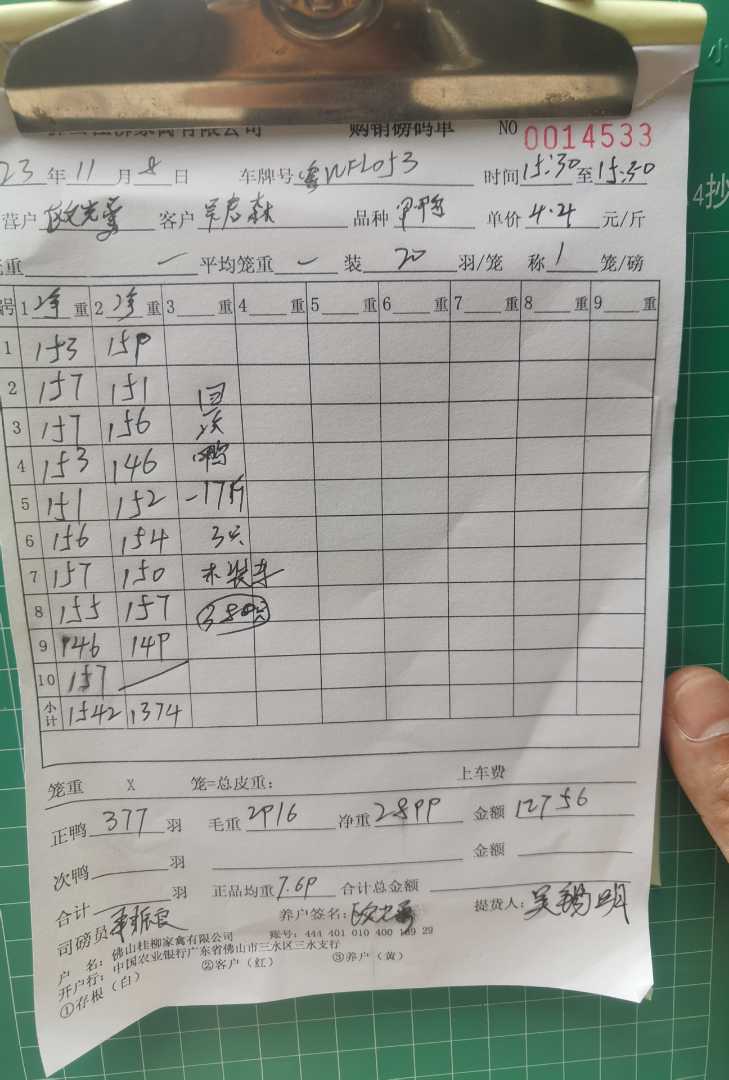 佛山桂柳家禽有限公司 购销磅码单 NO 0014533
23 年 11 月 8 日 车牌号 粤WFL053 时间 15:30 至 15:30
营户 客户 品种 单价 4.4 元/斤
重 一 平均笼重 一 装 20 羽/笼 称 1 笼/磅
号 1 净 重 2 净 重 3 重 4 重 5 重 6 重 7 重 8 重 9 重
1 153 159
2 157 151 回
3 157 156 次
4 153 146 鸭
5 151 152 -17斤
6 156 154 3只
7 157 150 未装车
8 155 157 380只
9 146 149
10 157
小计 1542 1374
笼重 X 笼=总皮重: 上车费
正鸭 377 羽 毛重 2916 净重 2899 金额 12756
次鸭 羽 金额
合计 羽 正品均重 7.69 合计总金额
司磅员 养户签名: 提货人: 吴锡明
户 名: 佛山桂柳家禽有限公司 账号: 444 401 010 400 169 29
开户行: 中国农业银行广东省佛山市三水区三水支行
①存根（白） ②客户（红） ③养户（黄）
4抄